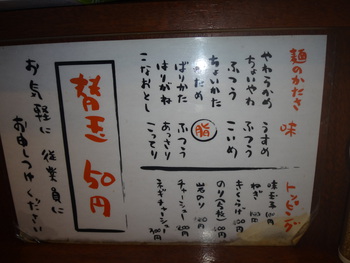 麺のかたさ
やわらかめ
ちょいやわ
ふつう
ちょいかた
かため
ばりかた
はりがね
こなおとし
味
うすめ
ふつう
こいめ
脂
ふつう
あっさり
こってり
トッピング
味玉子
ねぎ
きくらげ
のり
岩のり
チャーシュー
ネギチャーシュー
替玉 50円
お気軽に 従業員に
お申しつけください